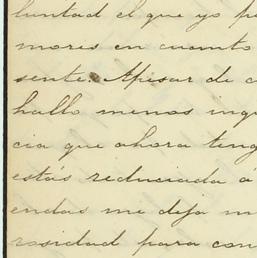 luntad el que yo pe
mores en cuanto
sente. Apesar de c
hallo menos inqu
cia que ahora teng
estás reduciada á
endas me deja m
rosidad para con